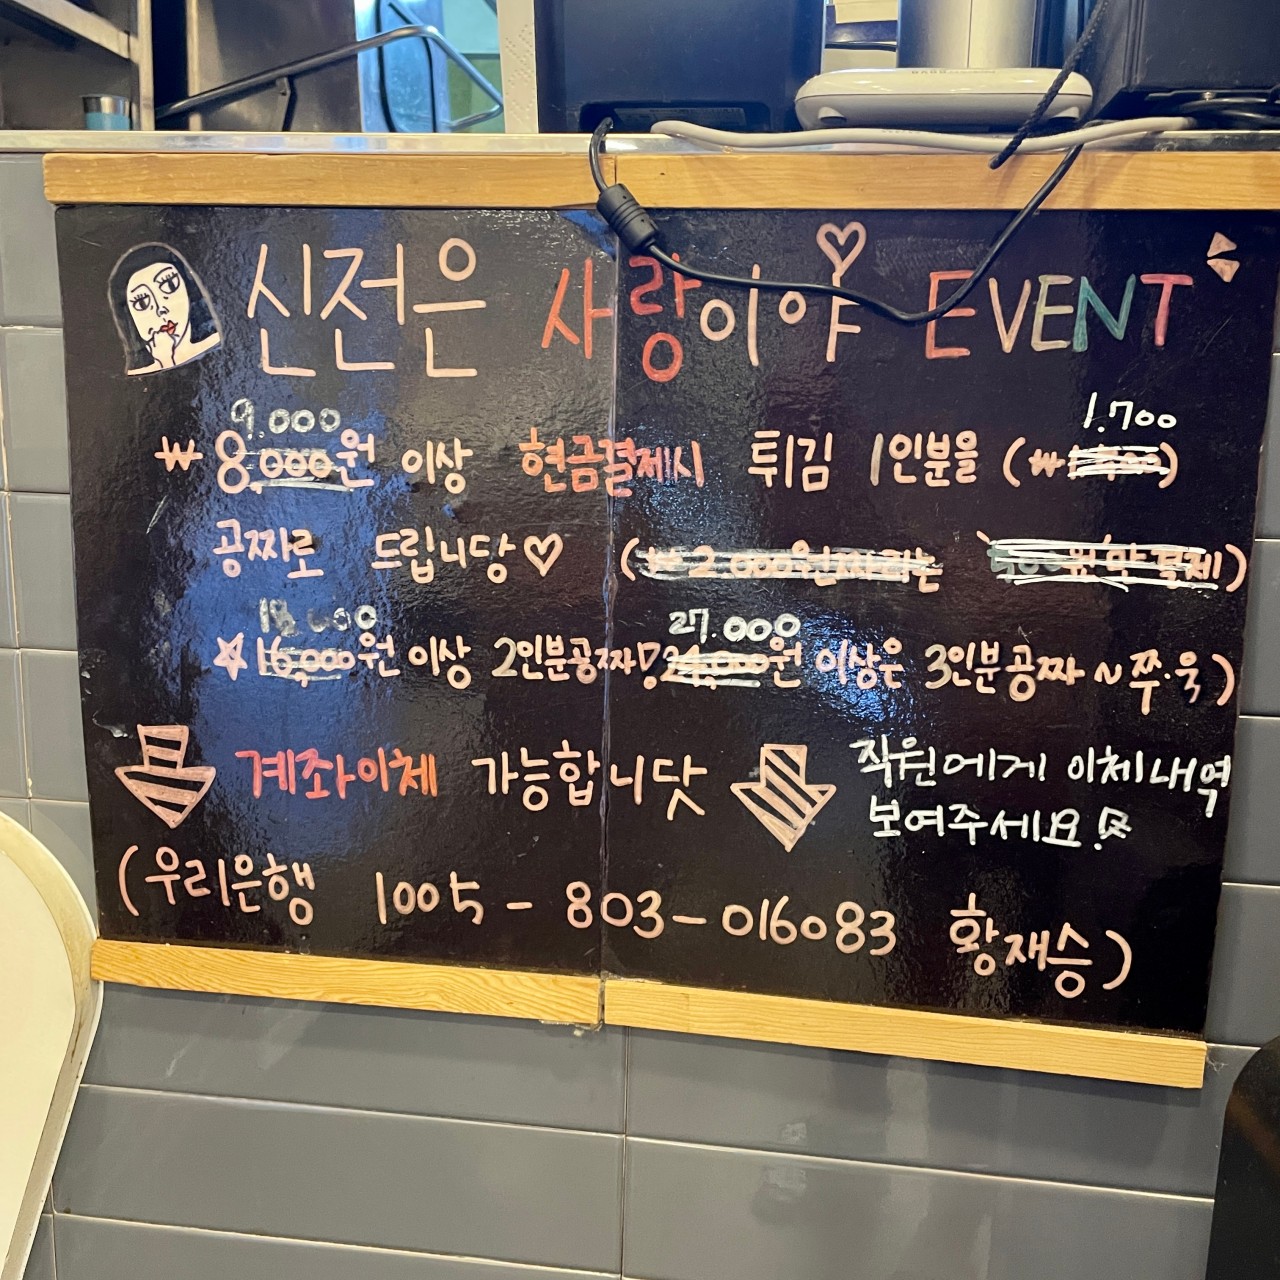 신전은 사랑이야 EVENT
9.000 1.700
₩ 8,000원 이상 현금결제시 튀김 1인분을 (₩
공짜로 드립니당♡ (₩2,000원짜리는 500원만 결제)
18.000 27.000
☆ 16,000원 이상 2인분공짜! 24,000원 이상은 3인분공짜 ~ 쭈·욱)
계좌이체 가능합니닷 직원에게 이체내역
보여주세요!
(우리은행 1005 - 803 - 016083 황재승)